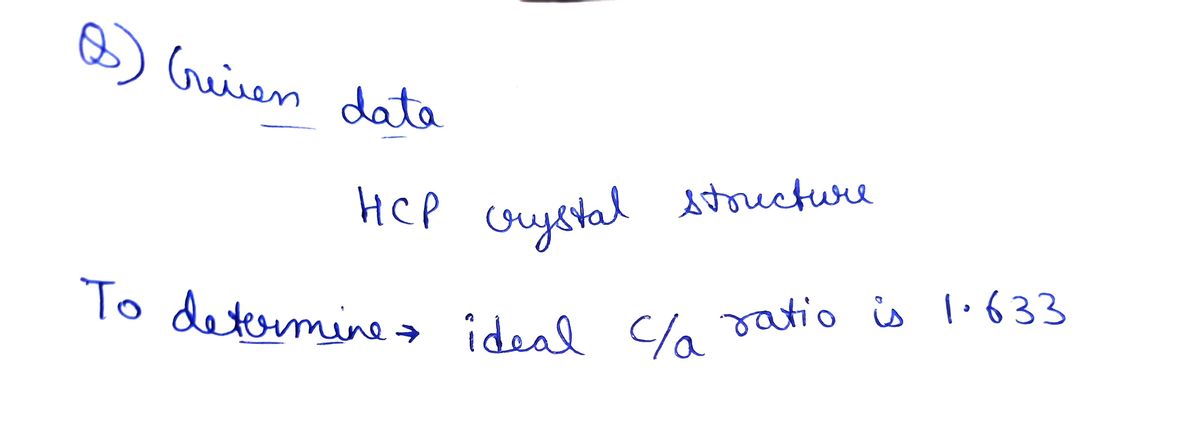 Q) Given data
HCP crystal structure
To determine → ideal c/a ratio is 1.633